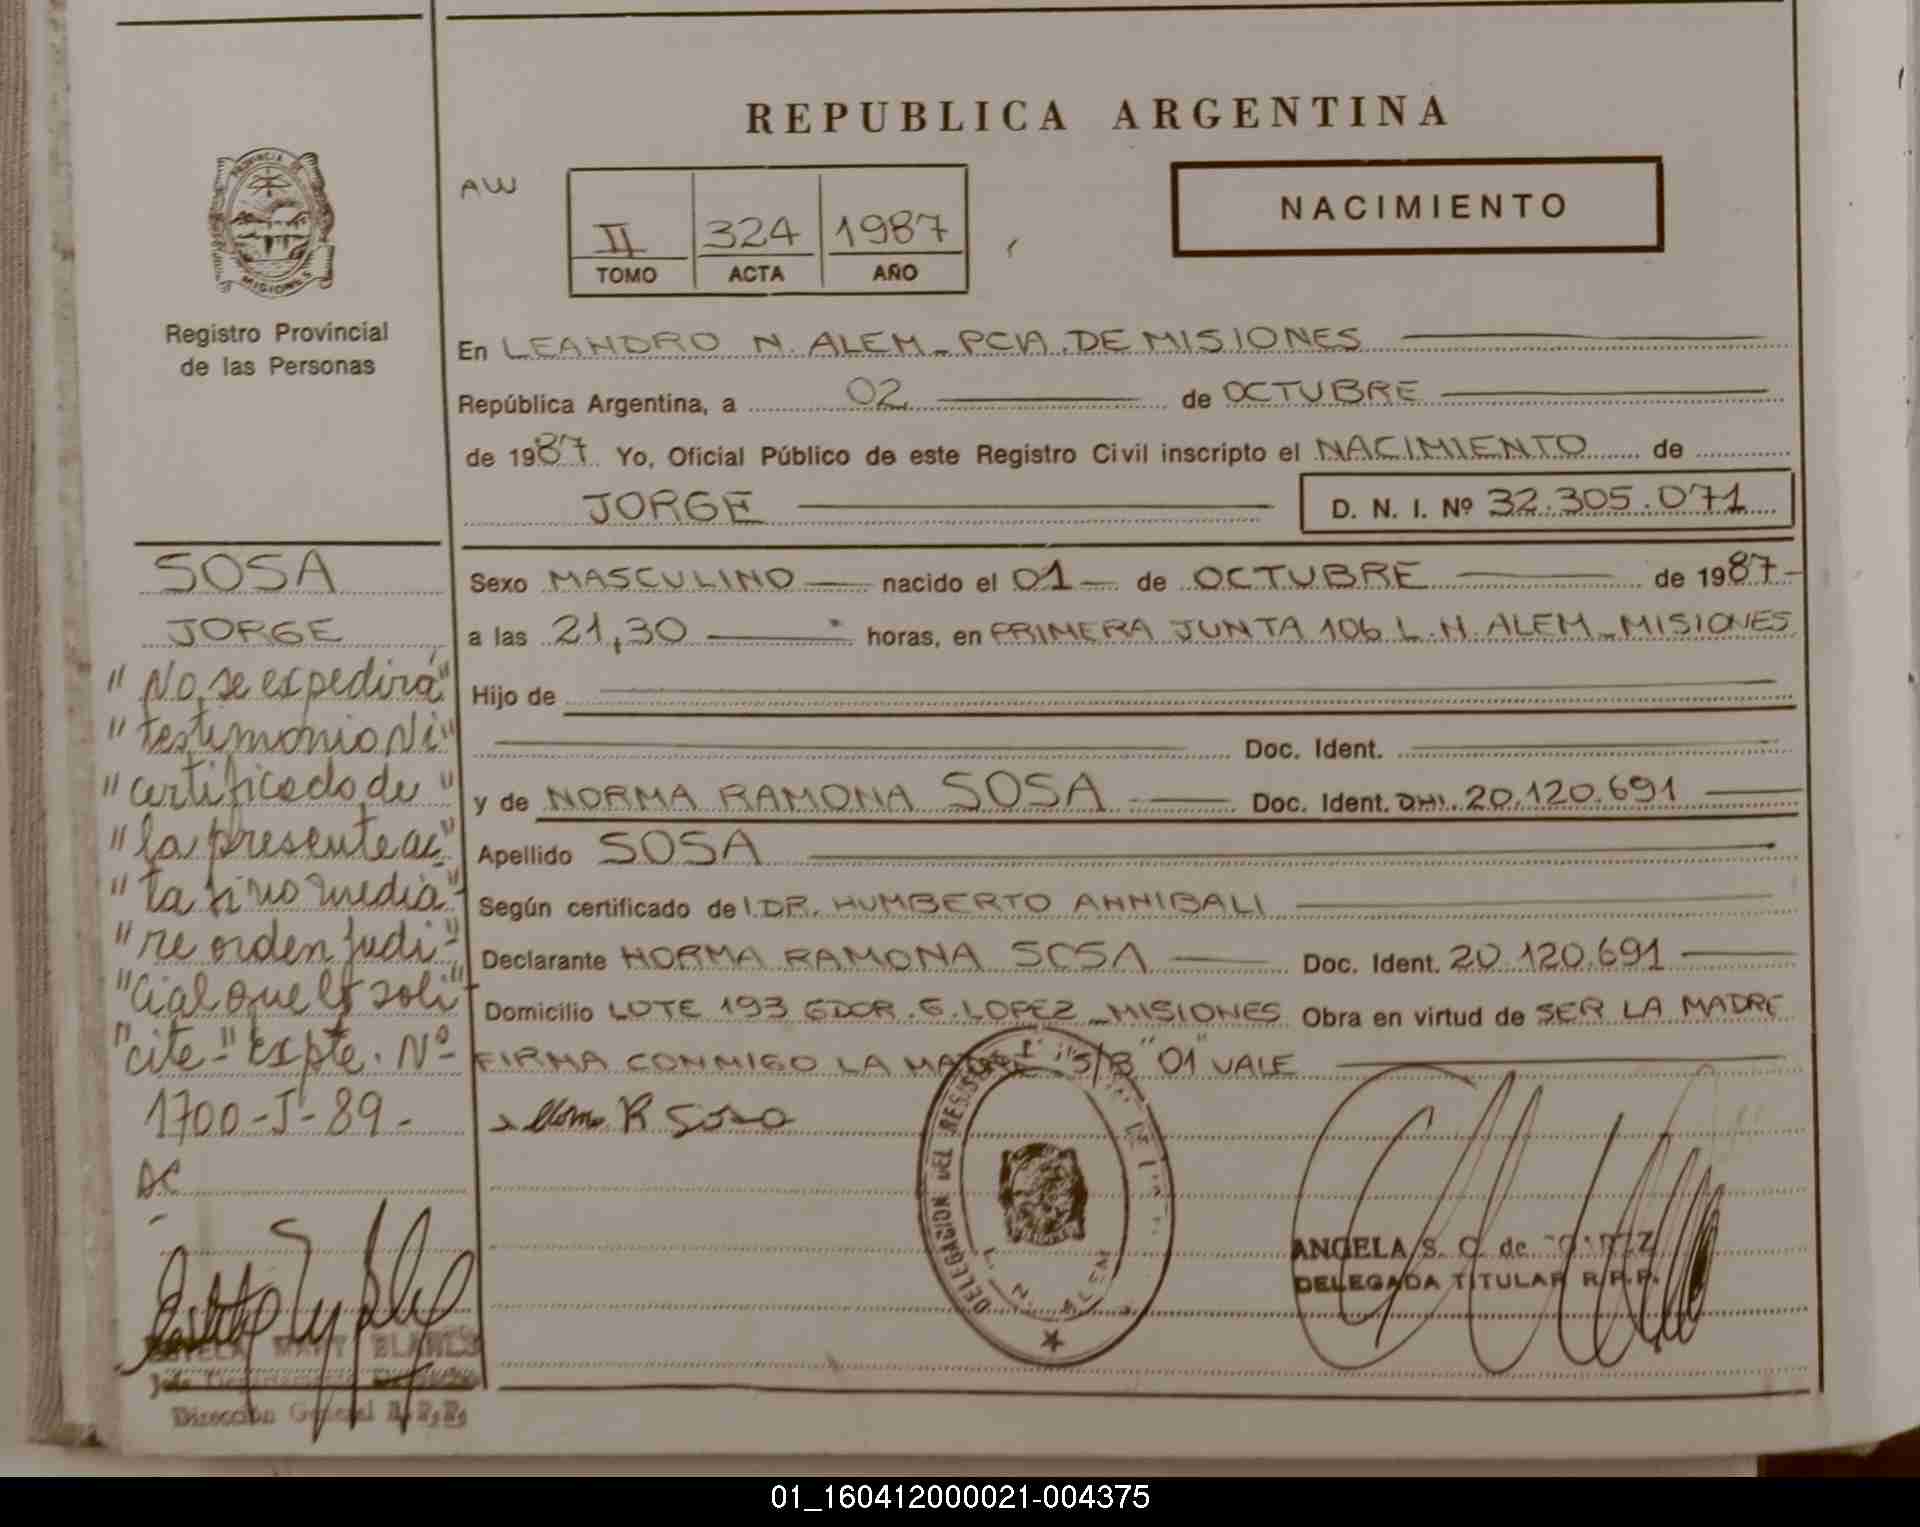 REPUBLICA ARGENTINA
PROVINCIA DE
MISIONES
Registro Provincial
de las Personas
AW
II 324 1987
TOMO ACTA AÑO
NACIMIENTO
En LEANDRO N. ALEM - PCIA. DE MISIONES
República Argentina, a 02 de OCTUBRE
de 1987. Yo, Oficial Público de este Registro Civil inscripto el NACIMIENTO de
JORGE D. N. I. Nº 32.305.071
Sexo MASCULINO nacido el 01 de OCTUBRE de 1987
a las 21,30 horas, en PRIMERA JUNTA 106 L.N. ALEM - MISIONES
Hijo de
Doc. Ident.
y de NORMA RAMONA SOSA Doc. Ident. DNI. 20.120.691
Apellido SOSA
Según certificado del DR. HUMBERTO ANNIBALI
Declarante NORMA RAMONA SOSA Doc. Ident. 20.120.691
Domicilio LOTE 193 GDOR. G. LOPEZ - MISIONES Obra en virtud de SER LA MADRE
FIRMA CONMIGO LA MADRE S/B "01" VALE
R Sosa
DELEGACION DEL
L. N. ALEM
ANGELA S. C. de
DELEGADA TITULAR R.P.P.
SOSA
JORGE
"No se expedirá"
"testimonio Ni"
"certificado de"
"la presente ac"
"ta si no media"
"re orden judi-"
"cial que lo soli"
"cite-" Expte. Nº
1700-J-89-
AC
MARY BLANES
Dirección General R.P.P.
01_160412000021-004375